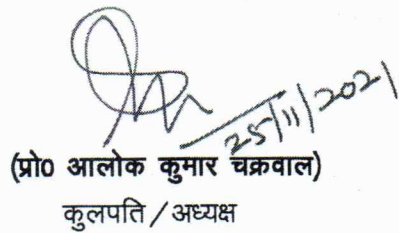 25/11/2021
(प्रो0 आलोक कुमार चक्रवाल)
कुलपति / अध्यक्ष